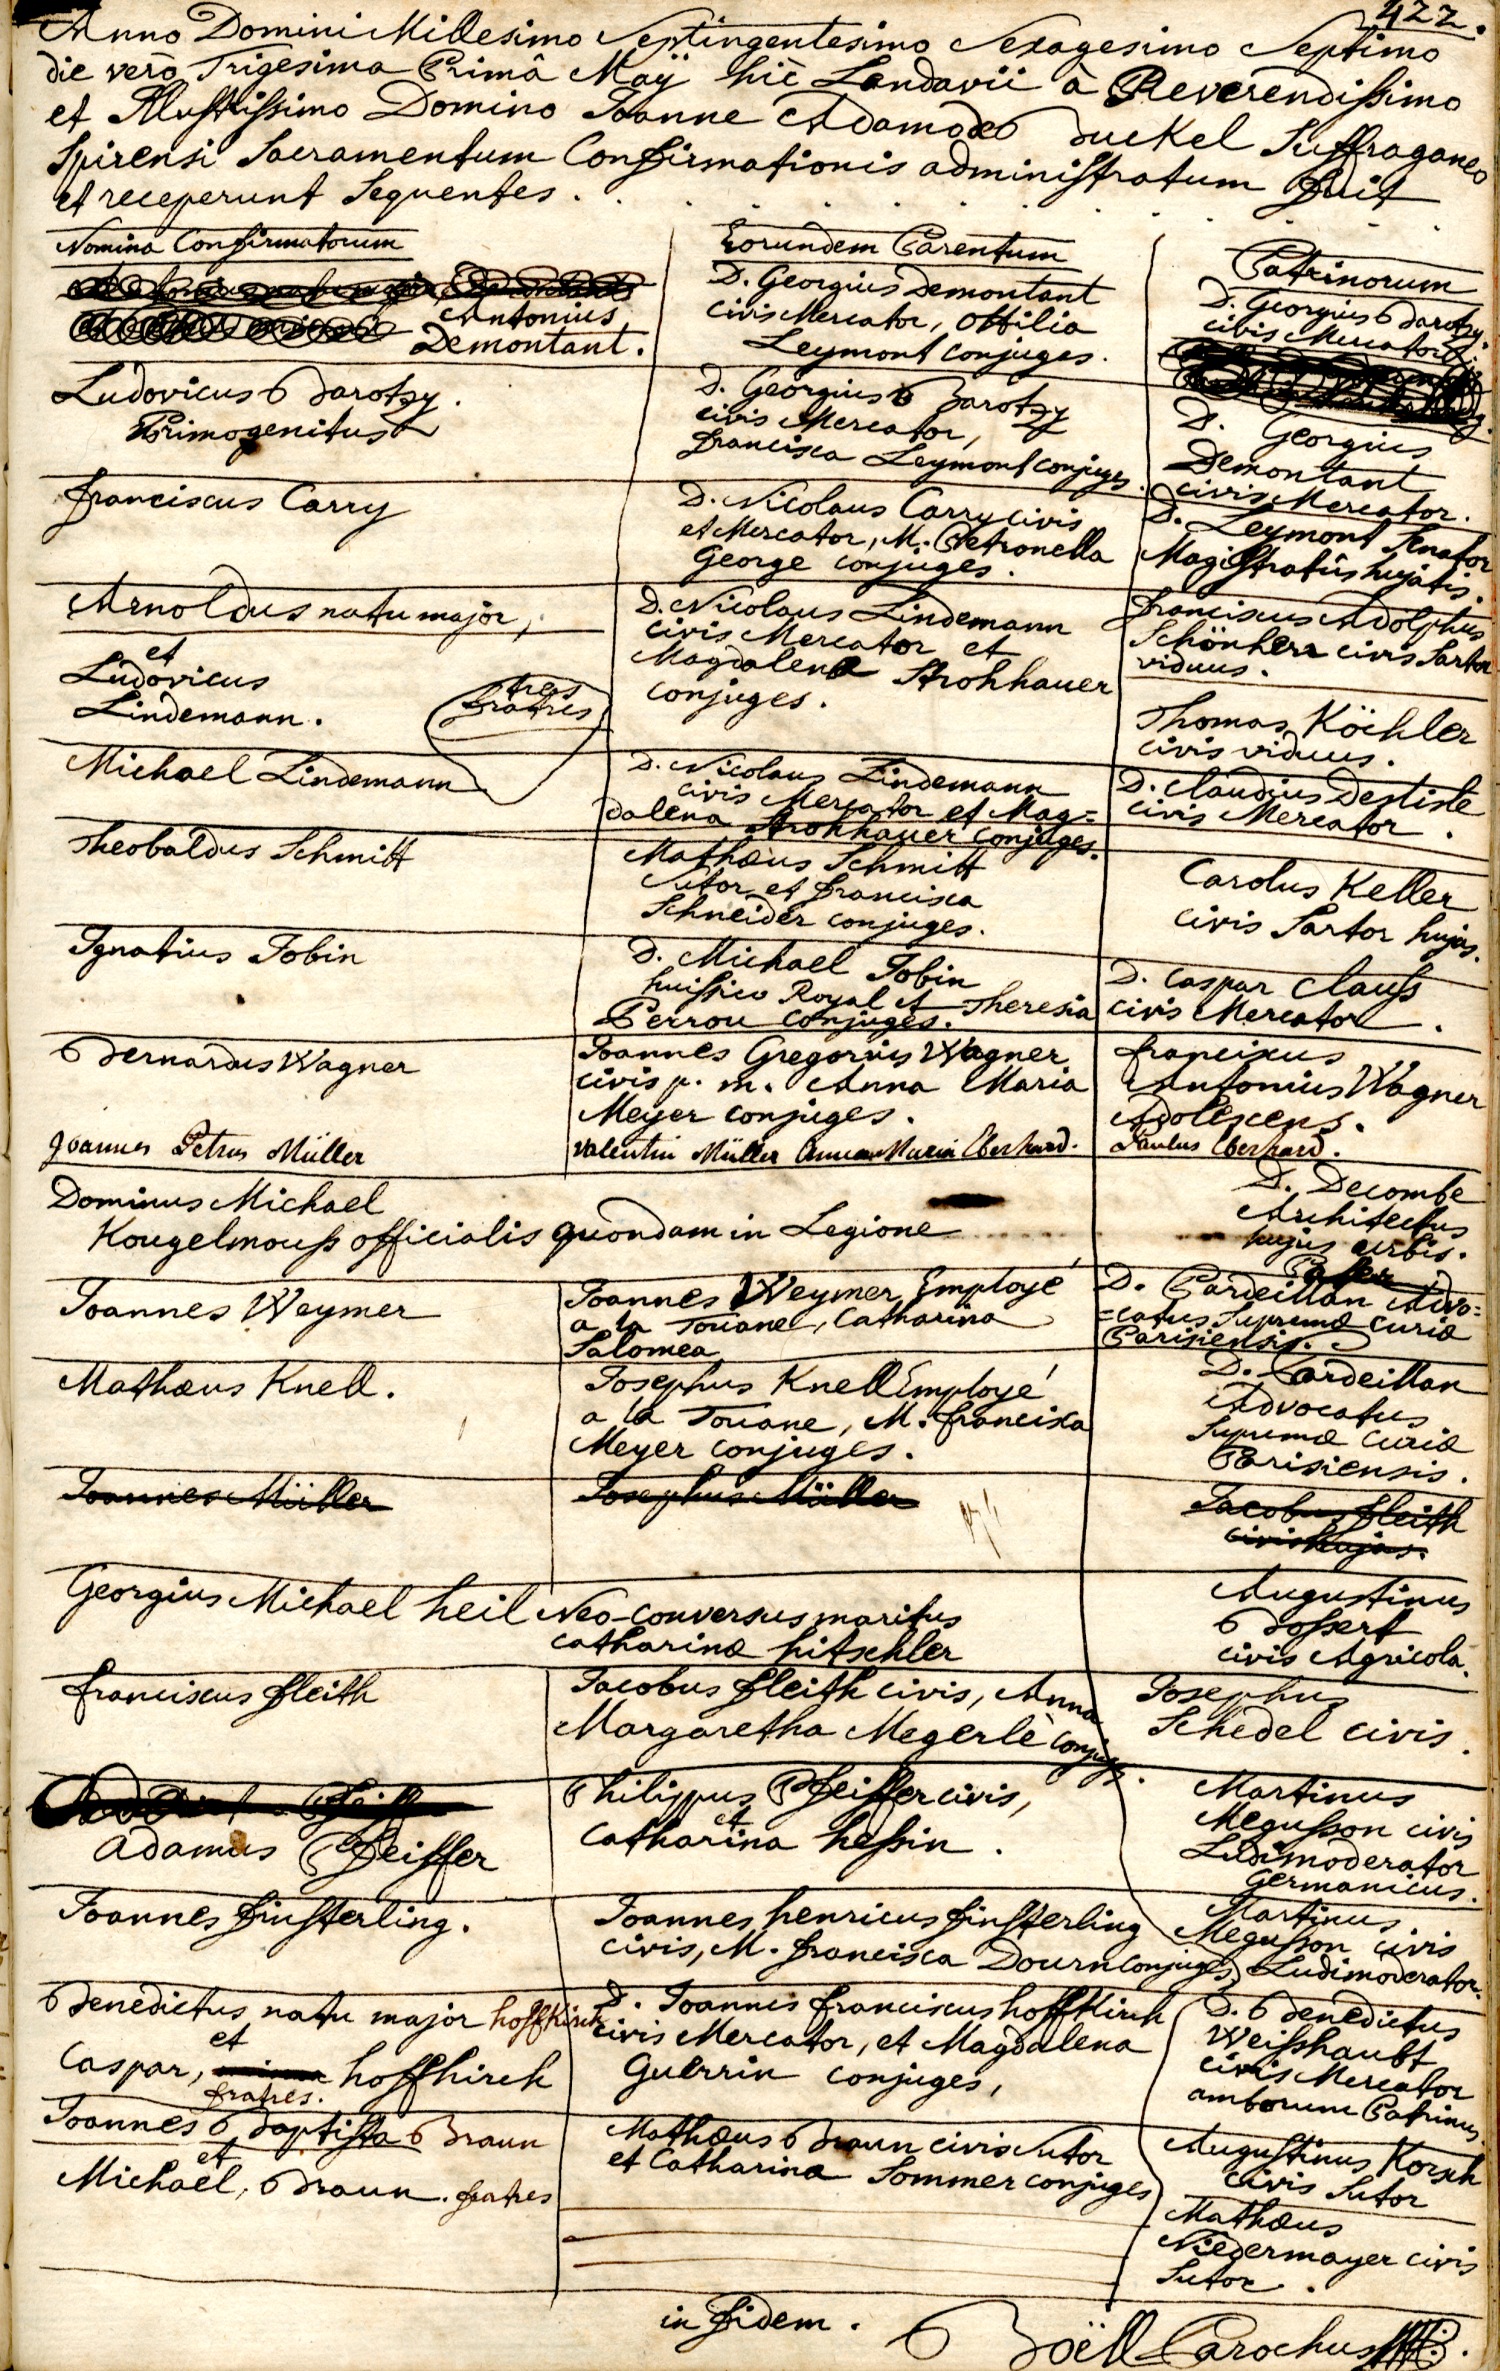 422.
Anno Domini Millesimo Septingentesimo Sexagesimo Septimo
die verò Trigesima Primâ Maÿ hîc Landavii à Reverendissimo
et Illustrissimo Domino Joanne Adamo Buckel Suffraganeo
Spirensi Sacramentum Confirmationis administratum fuit
et receperunt Sequentes.
Nomina Confirmatorum
Eorundem Parentum
Patrinorum
Antonius
Demontant.
D. Georgius Demontant
civis Mercator, Ottilia
Leymont conjuges.
D. Georgius Barotzy
civis Mercator
Ludovicus Barotzy.
Primogenitus
D. Georgius Barotzy
civis Mercator,
francisca Leymont conjuges.
D. Georgius
Demontant
civis Mercator.
franciscus Carry
D. Nicolaus Carry civis
et Mercator, M. Petronella
George conjuges.
D. Leymont Senator
Magistratûs hujatis.
Arnoldus natu major,
et
Ludovicus
Lindemann.
tres
fratres
D. Nicolaus Lindemann
civis Mercator et
Magdalena Strohhauer
conjuges.
franciscus Adolphus
Schönherr civis Sartor
viduus.
Thomas Köchler
civis viduus.
Michael Lindemann
D. Nicolaus Lindemann
civis Mercator et Mag=
dalena Strohhauer conjuges.
D. Claudius Destiste
civis Mercator.
Theobaldus Schmitt
Mathæus Schmitt
Sutor et francisca
Schneider conjuges.
Carolus Keller
civis Sartor hujas.
Ignatius Tobin
D. Michael Tobin
huissico Royal et Theresia
Perrou conjuges.
D. Caspar Clauss
civis Mercator.
Bernardus Wagner
Joannes Gregorius Wagner
civis p. m. Anna Maria
Meyer conjuges.
franciscus
Antonius Wagner
Adolescens.
Joannes Petrus Müller
Valentin Müller Anna Maria Eberhard.
Paulus Eberhard.
Dominus Michael
Kougelmouss officialis quondam in Legione
D. Decombe
Architectus
hujus urbis.
Joannes Weymer
Joannes Weymer Employé
a la Touane, Catharina
Salomea
D. Pardeillan Advo=
=catus Supremæ Curiæ
Parisiensis.
Mathæus Knell.
Josephus Knell Employé
a la Touane, M. francisca
Meyer conjuges.
D. Pardeillan
Advocatus
Supremæ Curiæ
Parisiensis.
Joannes Müller
Josephus Müller
Jacobus fleith
civis hujas.
Georgius Michael heil Neo-conversus maritus
Catharinæ hitschler
Augustinus
Bossert
civis Agricola.
franciscus fleith
Jacobus fleith civis, Anna
Margaretha Megerlè conjuges.
Josephus
Schedel civis.
Adamus Pfeiffer
Philippus Pfeiffer civis,
et
Catharina hessin.
Martinus
Megusson civis
Ludimoderator
Germanicus.
Joannes finsterling.
Joannes henricus finsterling
civis, M. francisca Dourn conjuges
Martinus
Megusson civis
Ludimoderator.
Benedictus natu major hoffkirch
et
Caspar, hoffkirch
fratres.
D. Joannes franciscus hoffkirch
civis Mercator, et Magdalena
Guerrin conjuges,
D. Benedictus
Weisshaubt
civis Mercator
amborum Patrinus.
Joannes Baptista Braun
et
Michael, Braun. fratres
Mathæus Braun civis Sutor
et Catharina Sommer conjuges
Augustinus Korsch
civis Sutor
Mathæus
Niedermayer civis
Sutor.
in fidem.
Boëll Parochus